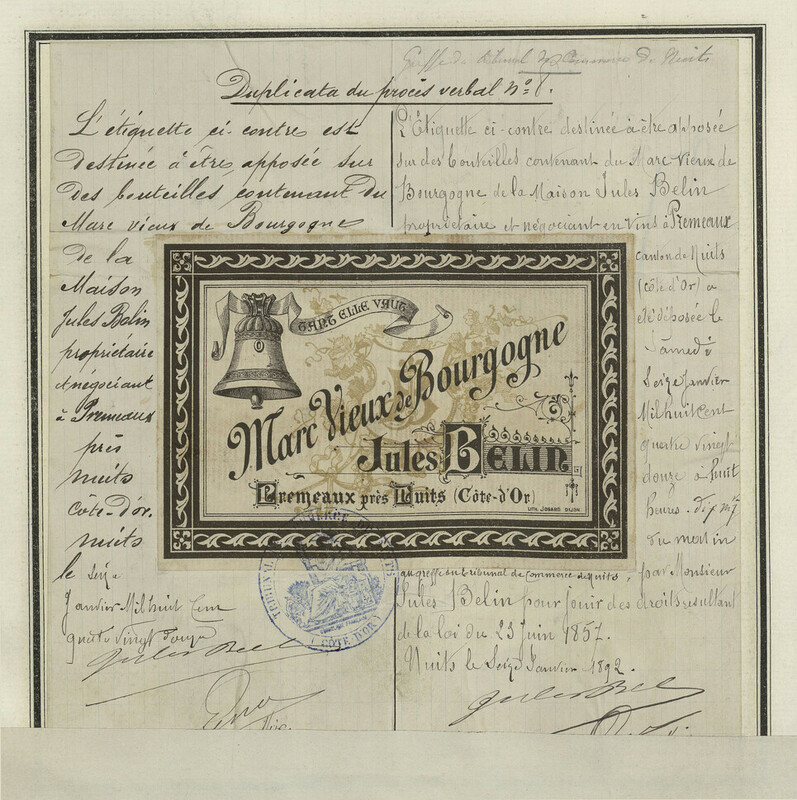 Greffe du tribunal de Commerce de Nuits
Duplicata du procès verbal N° 8.
L'étiquette ci-contre est
destinée à être apposée sur
des bouteilles contenant du
Marc vieux de Bourgogne
de la
Maison
Jules Belin
propriétaire
et négociant
à Premeaux
près
nuits
Côte-d'or.
nuits
le seize
Janvier Mil huit Cent
quatre vingt douze
Jules Belin
L'Étiquette ci-contre destinée à être apposée
sur des bouteilles contenant du Marc Vieux de
Bourgogne de la Maison Jules Belin
propriétaire et négociant en Vins à Premeaux
canton de Nuits
(côte d'Or) a
été déposée le
Samedi
Seize Janvier
Mil huit cent
quatre vingt
douze à huit
heures
du matin
au greffe du tribunal de Commerce de Nuits, par Monsieur
Jules Belin pour jouir des droits résultant
de la loi du 23 Juin 1857.
Nuits le Seize Janvier 1892.
Jules Belin
TANT ELLE VAUT
Marc Vieux de Bourgogne
Jules BELIN
Premeaux près Nuits (Côte-d'Or)
LITH. JOBARD DIJON
TRIBUNAL DE COMMERCE DE NUITS
(CÔTE D'OR)